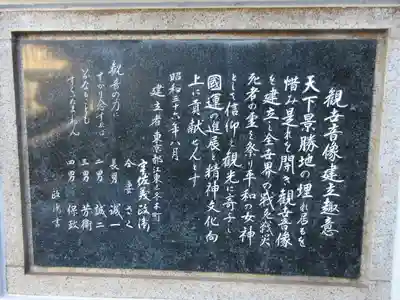 観世音像建立趣意
天下景勝地の埋れ居るを
惜み是れを開き観世音像
を建立し全世界の戦死戦災
死者の霊を祭り平和の女神
として信仰と観光に寄与し
國運の進展と精神文化向
上に貢献せんとす
昭和三十六年八月
建立者 東京都江東区
宇佐美政衛
仝 妻 さく
長男 誠一
二男 誠二
三男 芳衛
四男 保政
観音の力に
すがり念ずれば
政衛書